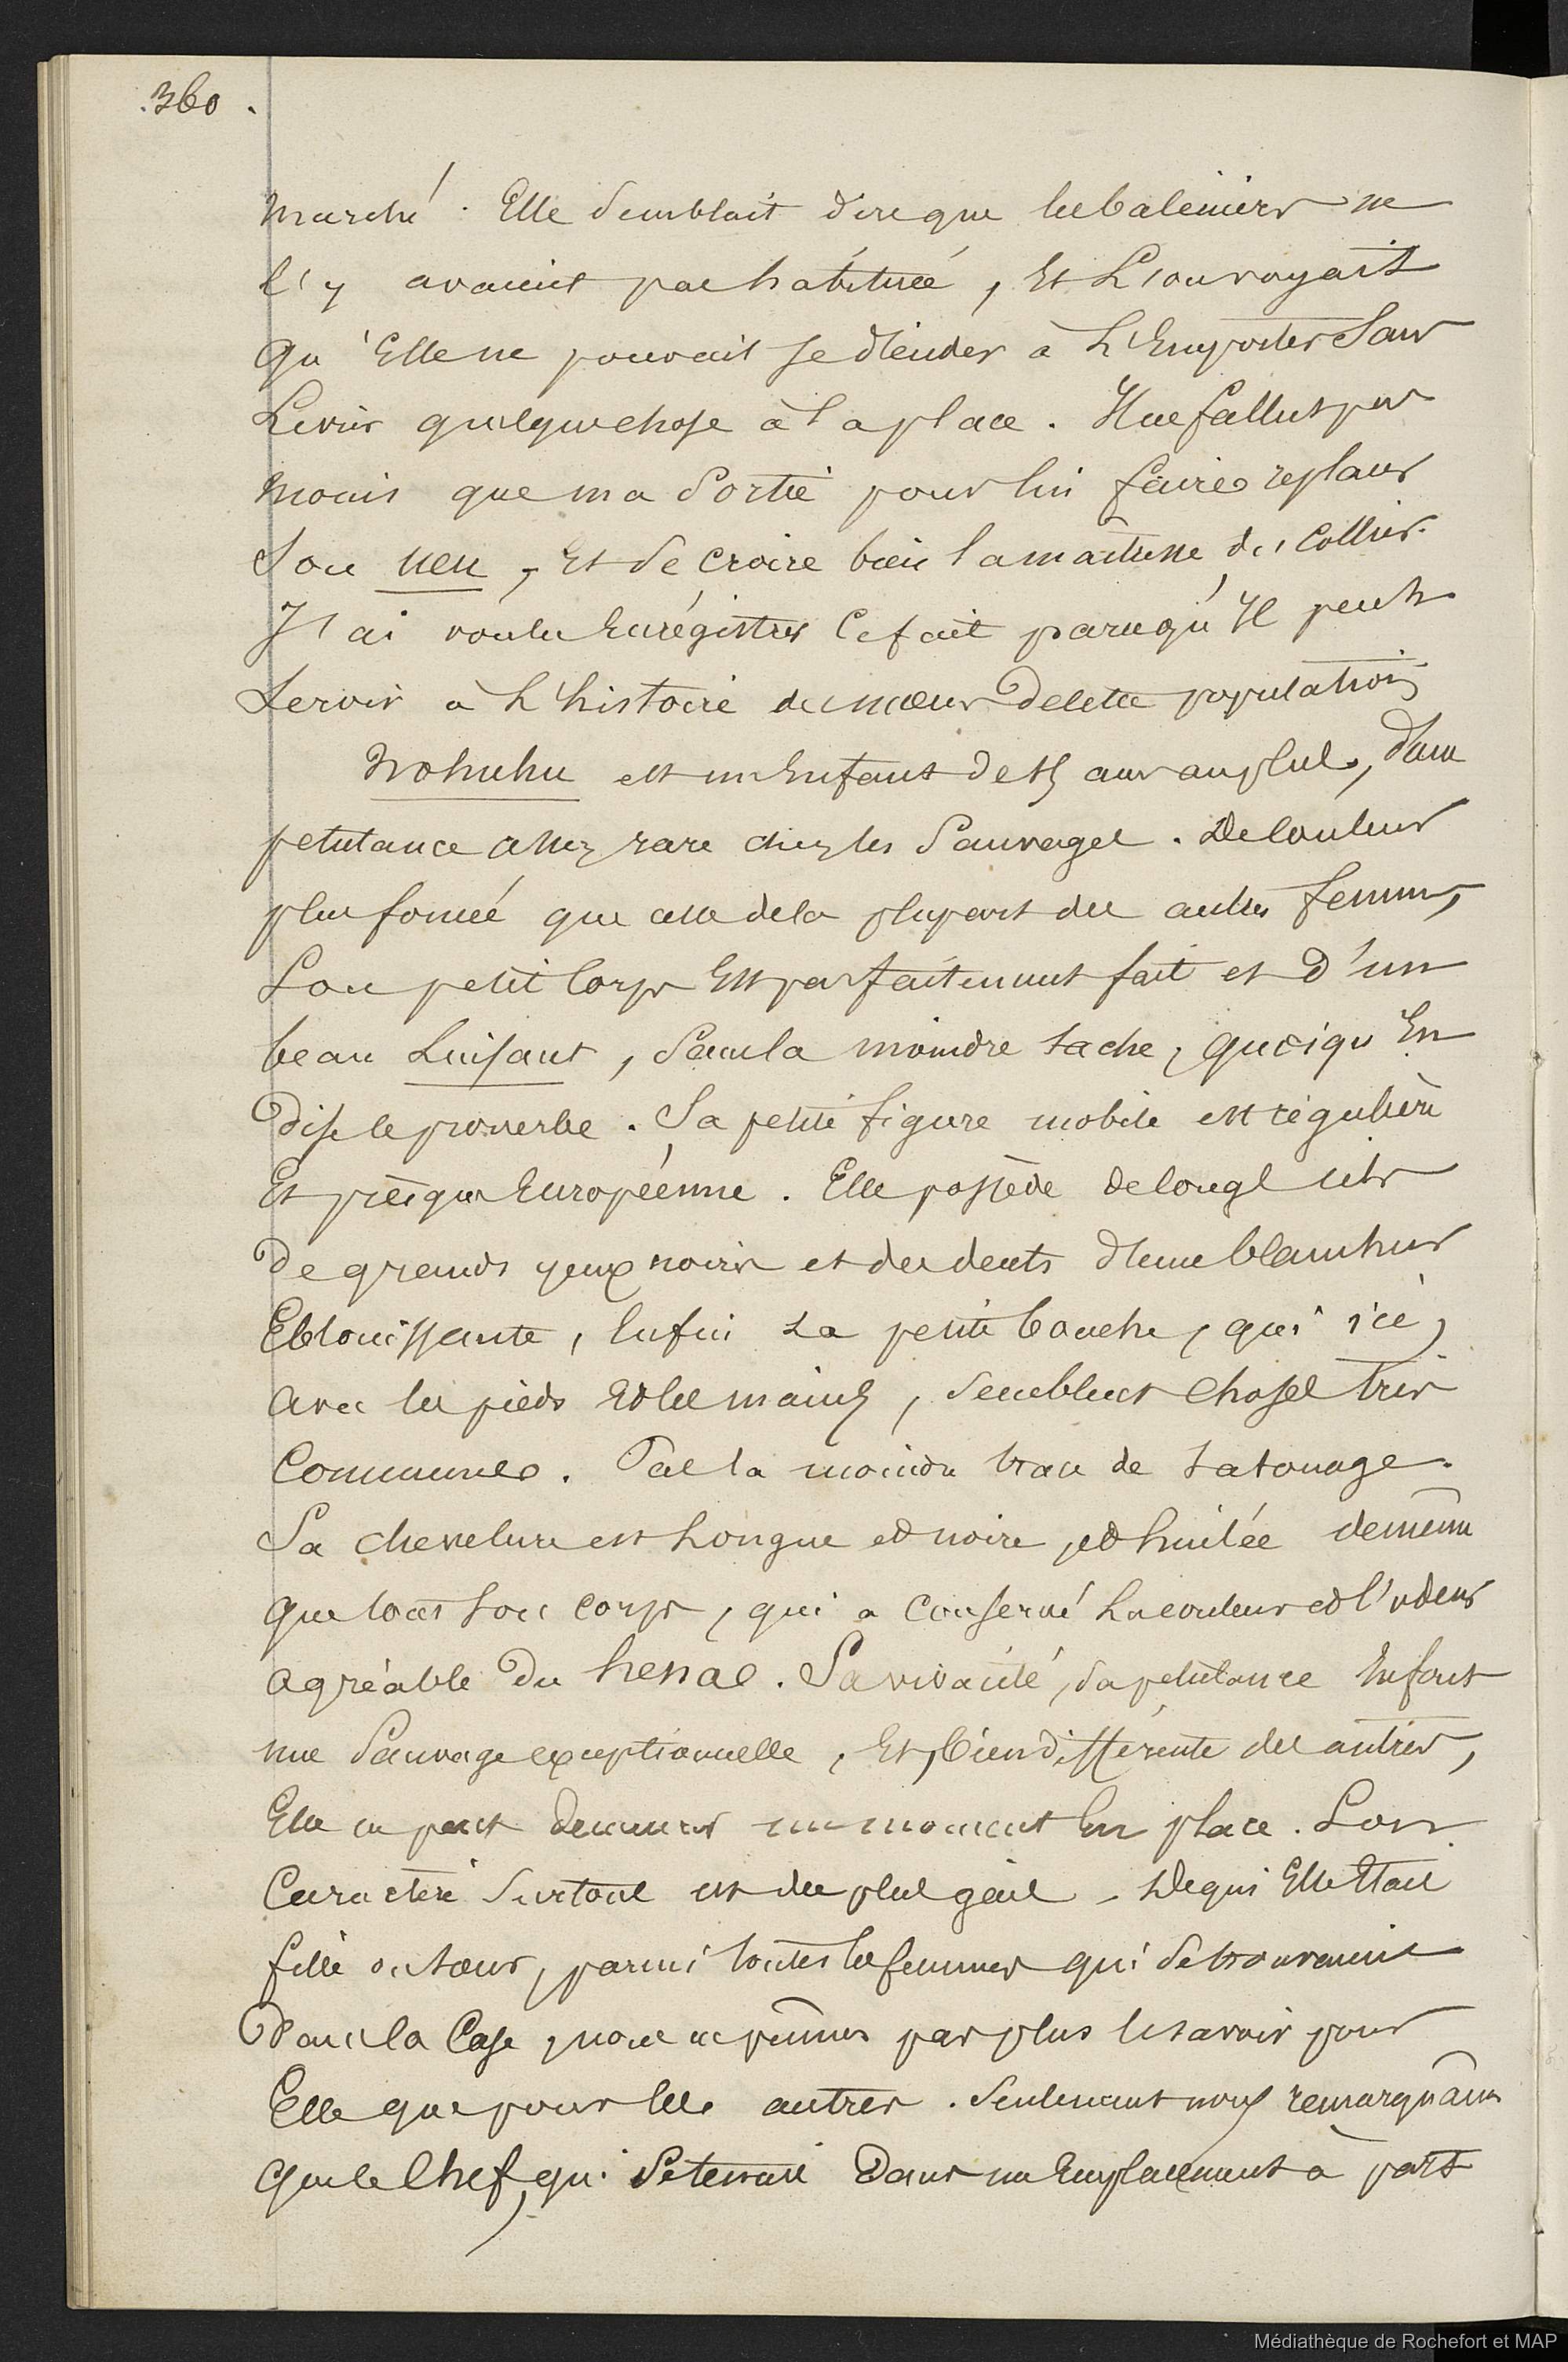 .360.
marché. Elle semblait dire que les baleiniers ne
l'y avaient pas habituée, Et L'on voyait
Qu'Elle ne pouvait se décider à L'Emporter Sans
Livrer quelque chose à la place. Il ne fallut pas
moins que ma Sortie pour lui faire replacer
Son neu, Et se croire bien la maîtresse du Collier.
J'ai voulu Enrégistrer Ce fait parcequ'Il peut
Servir à L'histoire des mœurs De cette population
Nohuhu est un Enfant de 15 ans au plus, d'une
petutance assez rare chez les Sauvages. De Couleur
plus foncée que celle de la plupart des autres femmes,
Son petit Corps Est parfaitement fait et d'un
beau Luisant, Sans la moindre tache, quoiqu'En
Dise le proverbe. Sa petite figure mobile est régulière
Et présque Européenne. Elle possède de longs cils
De grands yeux noirs et des dents d'une blancheur
Eblouissante, Enfin La petite bouche, qui ici,
avec les pieds et les mains, Semblent Choses très
Communes. Pas la moindre trace de tatouage.
Sa chevelure est Longue et noire, et huilée de même
que tout Son corps, qui a Conservé La couleur et l'odeur
agréable Du henae. Sa vivacité, sa petulance En font
une Sauvage exceptionnelle, Et, bien différente des autres,
Elle ne peut demeurer un moment En place. Son
Caractère Surtout est des plus gais. De qui Elle Etait
fille ou Sœur, parmi toutes les femmes qui se trouvaient
Dans la Case, nous ne pûmes pas plus le savoir pour
Elle que pour les autres. Seulement nous remarquâmes
que le Chef, qui Se tenait Dans un Emplacement à part
Médiathèque de Rochefort et MAP